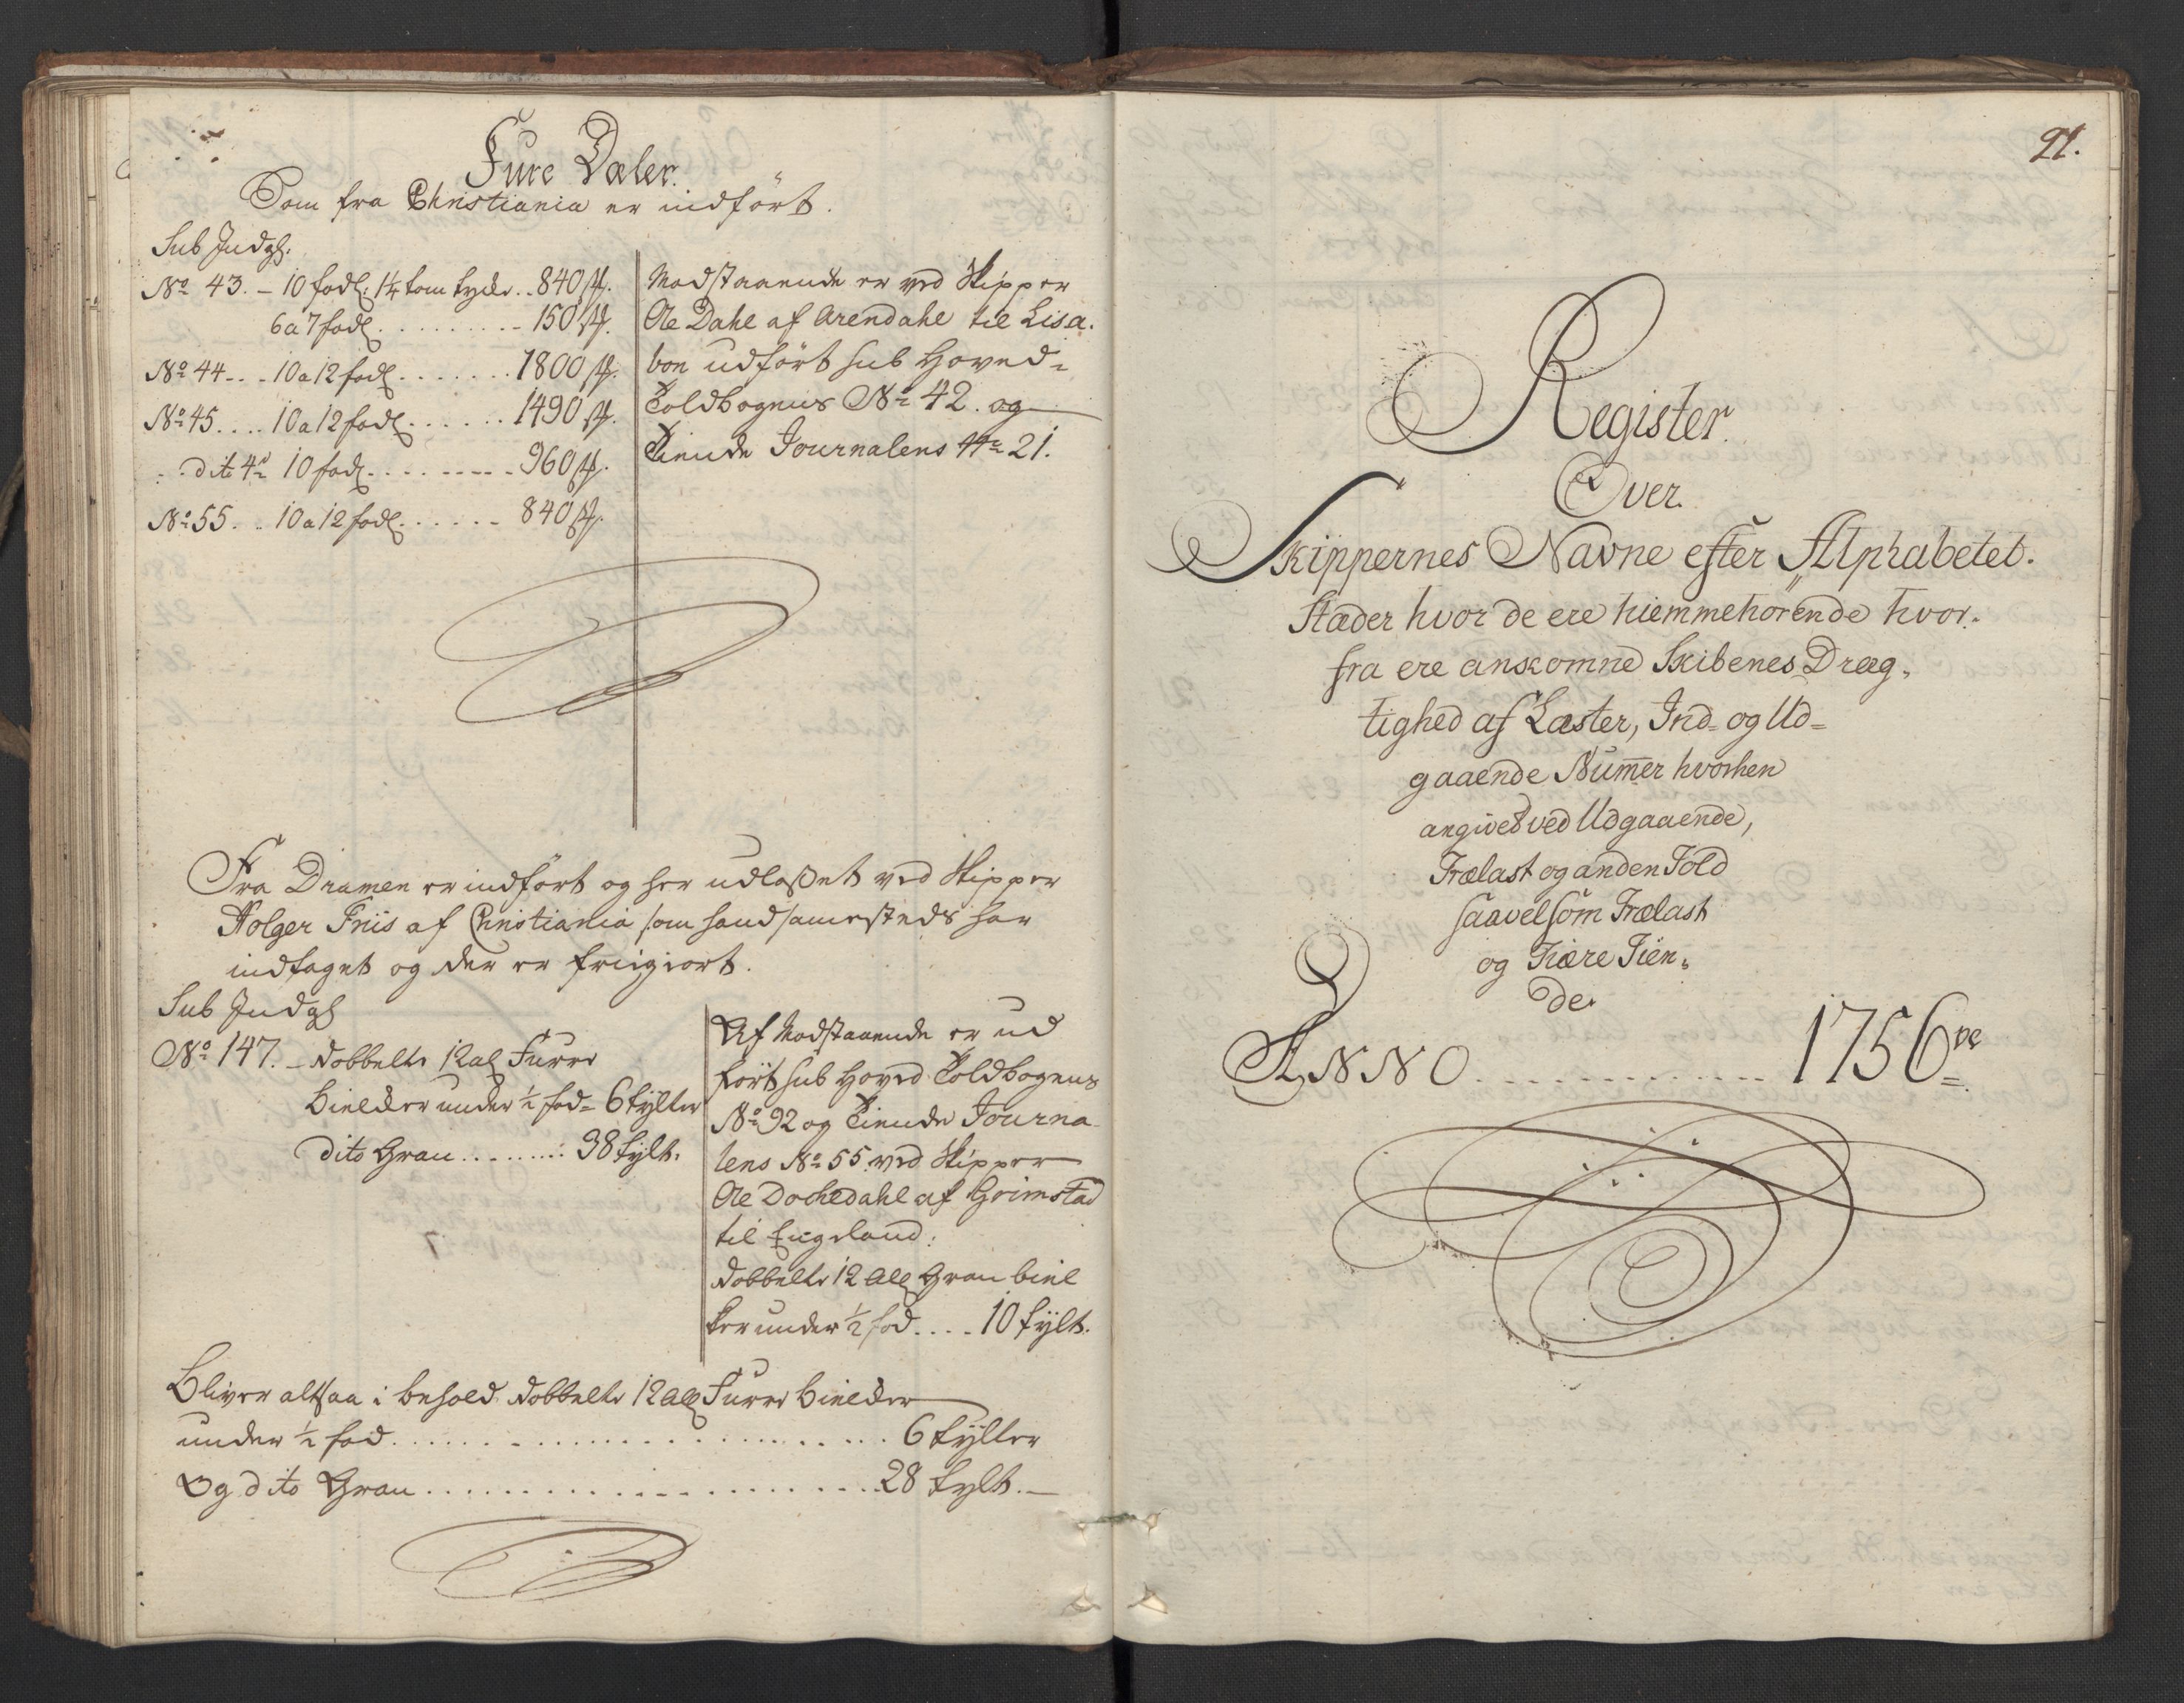 Fure Dæler.
Som fra Christiania er indført.
Sub Indg:
No 43. – 10 fods: 1¼ tom tycke .. 840 st.
6 a 7 fods ......... 150 st.
No 44 ... 10 a 12 fods ....... 1800 st.
No 45 .... 10 a 12 fods ...... 1490 st.
dito 10 fods ......... 960 st.
No 55 ... 10 a 12 fods ...... 840 st.
Modstaaende er ved Skipper
Ole Dahl af Arendahl til Lisa-
bon udført sub Hoved-
Toldbogens No 42. og
Tiende Journalens No 21.
Fra Dramen er indført og her udlosset ved Skipper
Holger Friis af Christiania som hand sammesteds har
indtaget og der er friigiort.
Sub Indg:
No 147. – Dobbelte 12 al: Furre
Bielcker under ½ fod = 6 tylter
dito Gran ......... 38 tylt.
Af Modstaaende er ud
ført sub Hoved Toldbogens
No 92 og Tiende Journa-
lens No 55 ved Skipper
Ole Dochedahl af Grimstad
til Engeland:
Dobbelte 12 Al: Gran biel
ker under ½ fod .... 10 tylt.
Bliver altsaa i behold Dobbelte 12 Al: Furre Bielcker
under ½ fod ......................... 6 tylter
Og dito Gran ...................... 28 tylt. –
91.
Register.
Over.
Skippernes Navne efter Alphabetet.
Stæder hvor de ere hiemmehørende hvor-
fra ere anskomne Skibenes Dræg-
tighed af Læster, Ind- og Ud-
gaaende Numer hvorhen
angivet ved Udgaaende,
Trælast og anden Told
saavelsom Trælast
og Tiære Tien-
de.
ANNO ............... 1756de